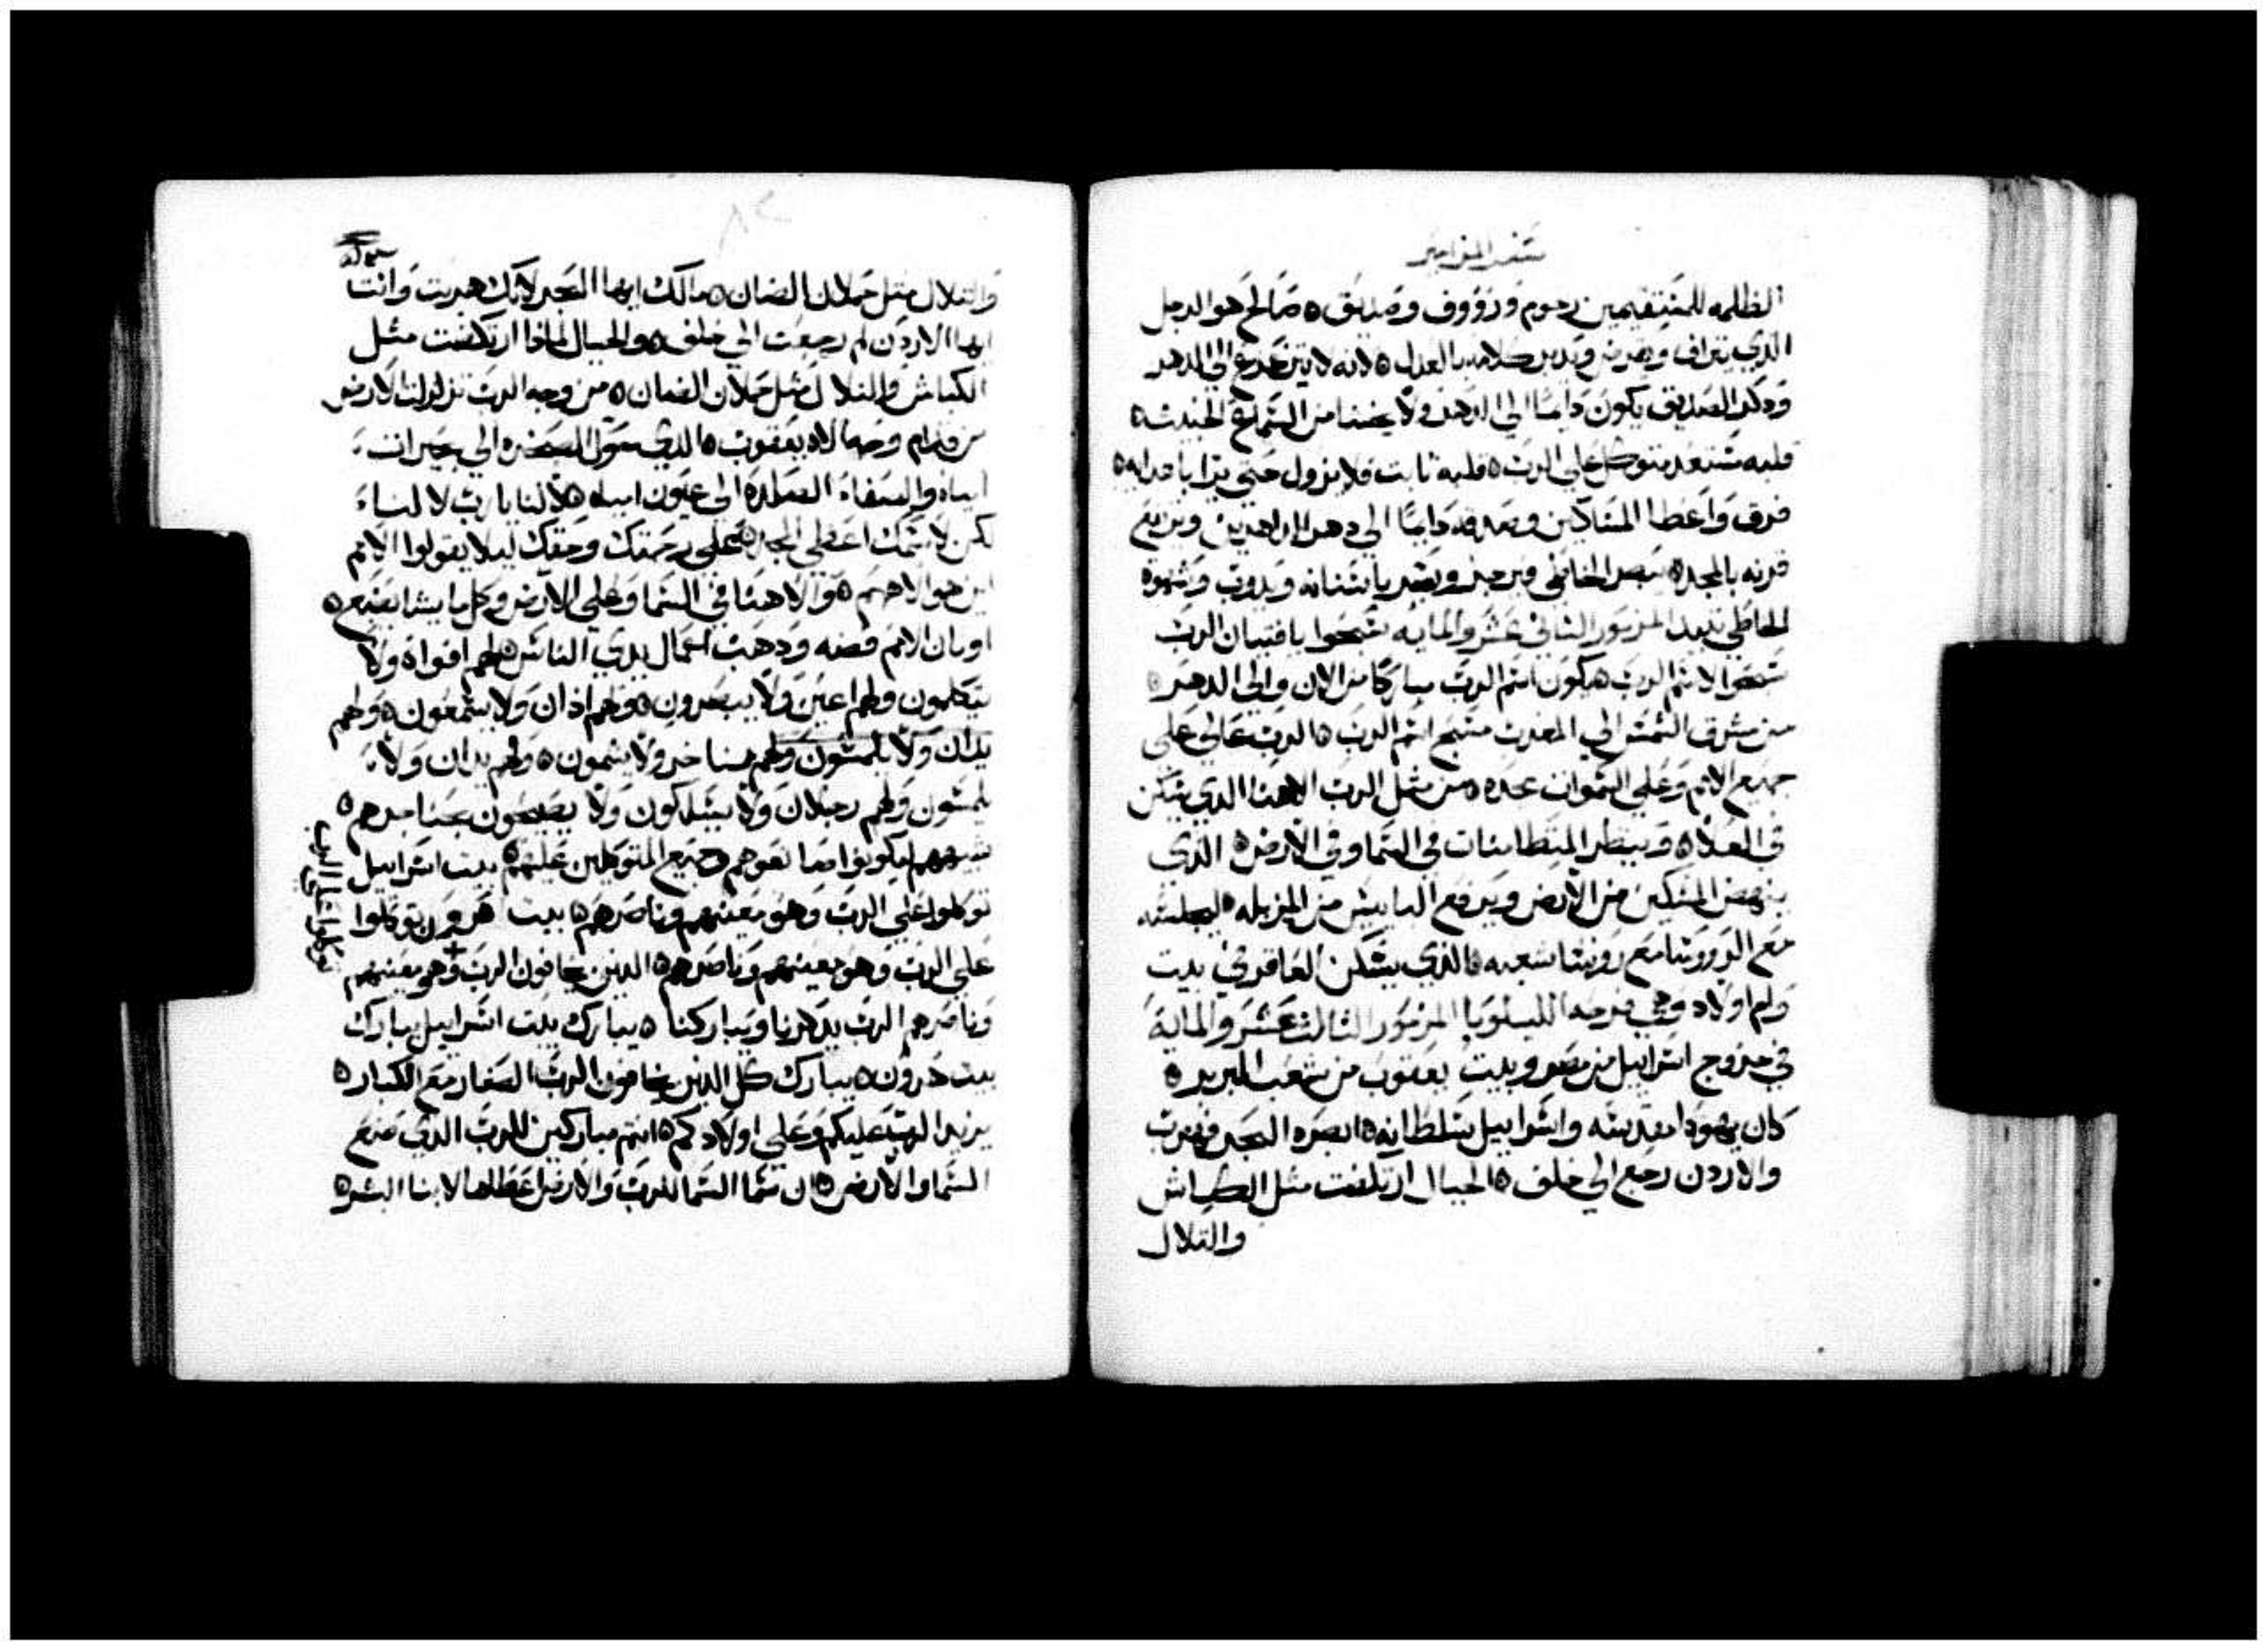 سفر المزامير
الظلمه للمستقيمين رحوم ورووف وصديق ه صالح هو الرجل
الذي يتراف ويقرض ويدبر كلامه بالعدل ه لانه لا يتزعزع الي الدهر
وذكر الصديق يكون دايما الي الدهر ولا يخشا من السماع الخبيث ه
قلبه مستعد يتوكل علي الرب ه قلبه ثابت فلا يزول حتي يرا باعدايه ه
فرق واعطا المساكين وصدقه دايما الي دهر الداهرين ويرتفع
قرنه بالمجد ه يبصر الخاطي ويرجز ويصر باسنانه ويدوب وشهوة
الخاطي تبيد المزمور الثاني عشر والمايه سبحوا يا فتيان الرب
سبحوا لاسم الرب ه يكون اسم الرب مباركا من الان والي الدهر ه
من مشرق الشمس الي المغرب مسبح اسم الرب ه الرب عالي علي
جميع الامم وعلي السموات مجده ه من مثل الرب الاهنا الذي يسكن
في العلا ه وينظر المتطامنات في السما وفي الارض ه الذي
ينهض المسكين من الارض ويرفع البايس من المزبله ه ليجلسه
مع الروروسا مع روسا شعبه ه الذي يسكن العاقر في بيت
وام اولاد وهي فرحه الليلويا المزمور الثالث عشر والمايه
في خروج اسراييل من مصر وبيت يعقوب من شعب البربر ه
كان يهودا مقدسه واسراييل سلطانه ه ابصره البحر فهرب
والاردن رجع الي خلف ه الجبال ارتكضت مثل الكباش
والتلال
والتلال مثل حملان الضان ه مالك ايها البحر لانك هربت وانت
ايها الاردن لم رجعت الي خلف ه والجبال لماذا ارتكضت مثل
الكباش والتلال مثل حملان الضان ه من وجه الرب تزلزلت الارض
من قدام وجه الاه يعقوب ه الذي حول الصخره الي بحيرات
امياه والصفاه الصلده الي عيون امياه ه لا لنا يا رب لا لنا
لكن لاسمك اعطي المجد ه علي رحمتك وحقك ليلا يقولوا الامم
اين هو الاههم ه والاهنا في السما وعلي الارض وكل ما يشا يصنع ه
اوثان الامم فضه ودهب اعمال يدي الناس ه لهم افواه ولا
يتكلمون ولهم اعين ولا يبصرون ه ولهم اذان ولا يسمعون ه ولهم
يدان ولا يلمسون ولهم مناخر ولا يشمون ه ولهم يدان ولا
يلمسون ولهم رجلان ولا يسلكون ولا يصيحون بحناجرهم ه
شبههم ليكونوا صانعوهم وجميع المتوكلين عليهم ه بيت اسراييل
توكلوا علي الرب وهو معينهم وناصرهم ه بيت هرون توكلوا
علي الرب وهو معينهم وناصرهم ه الذين يخافون الرب وهو معينهم
توكلوا علي الرب
وناصرهم الرب يدكرنا ويباركنا ه يبارك بيت اسراييل يبارك
بيت هرون ه يبارك كل الذين يخافون الرب الصغار مع الكبار ه
يزيد الرب عليكم وعلي اولادكم ه انتم مباركين للرب الذي صنع
السما والارض ه ان سما السما للرب والارض اعطاها لابنا البشر ه